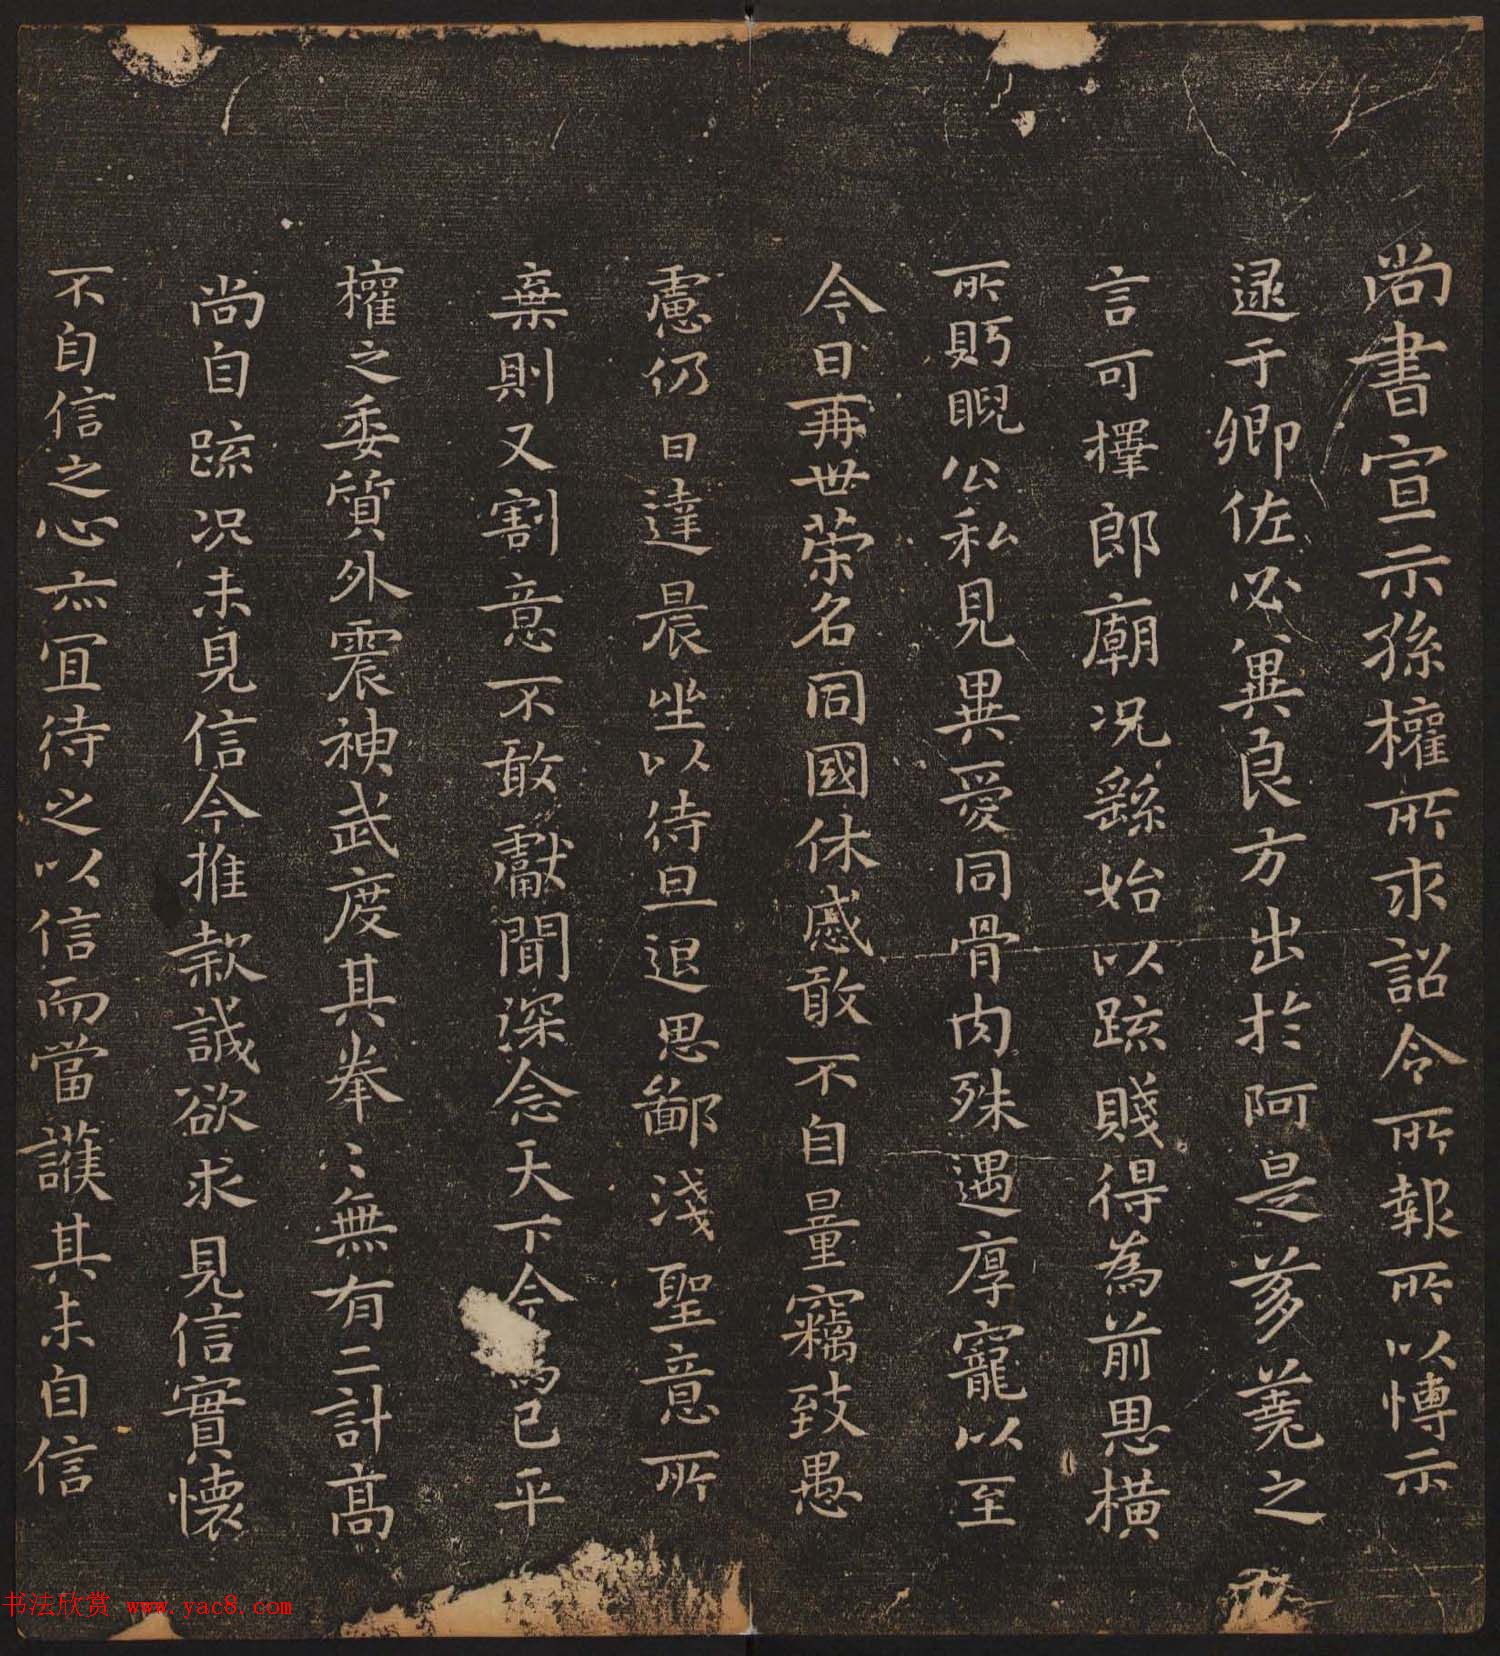 尚書宣示孫權所求詔令所報所以博示
逮于卿佐必冀良方出於阿是芻蕘之
言可擇郎廟况繇始以疏賤得為前恩橫
所眄睨公私見異愛同骨肉殊遇厚寵以至
今日再世荣名同國休慼敢不自量竊致愚
慮仍日達晨坐以待旦退思鄙淺聖意所
棄則又割意不敢獻聞深念天下今為已平
權之委質外震神武度其拳〻無有二計高
尚自疏况未見信今推款誠欲求見信實懷
不自信之心亦宜待之以信而當護其未自信
书法欣赏 www.yac8.com